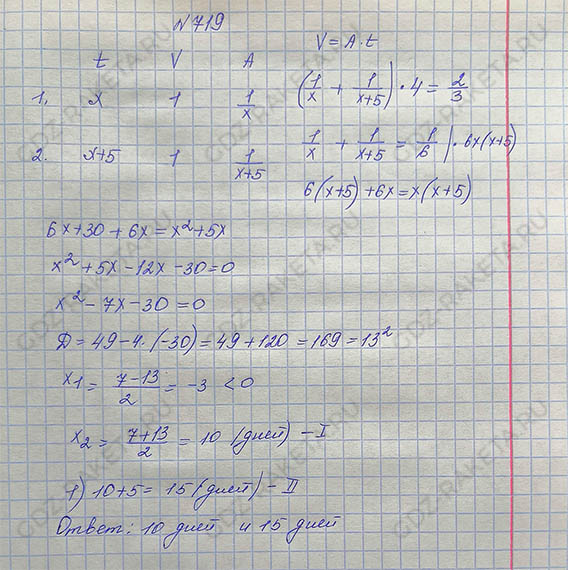 N 719
t V A V = A · t
1. x 1 1/x (1/x + 1/(x+5)) · 4 = 2/3
2. x+5 1 1/(x+5) 1/x + 1/(x+5) = 1/6 | · 6x(x+5)
6(x+5) + 6x = x(x+5)
6x+30 + 6x = x² + 5x
x² + 5x - 12x - 30 = 0
x² - 7x - 30 = 0
Д = 49 - 4 · (-30) = 49 + 120 = 169 = 13²
x₁ = (7-13)/2 = -3 < 0
x₂ = (7+13)/2 = 10 (дней) - I
1) 10+5 = 15 (дней) - II
Ответ: 10 дней и 15 дней
GDZ-RAKETA.RU